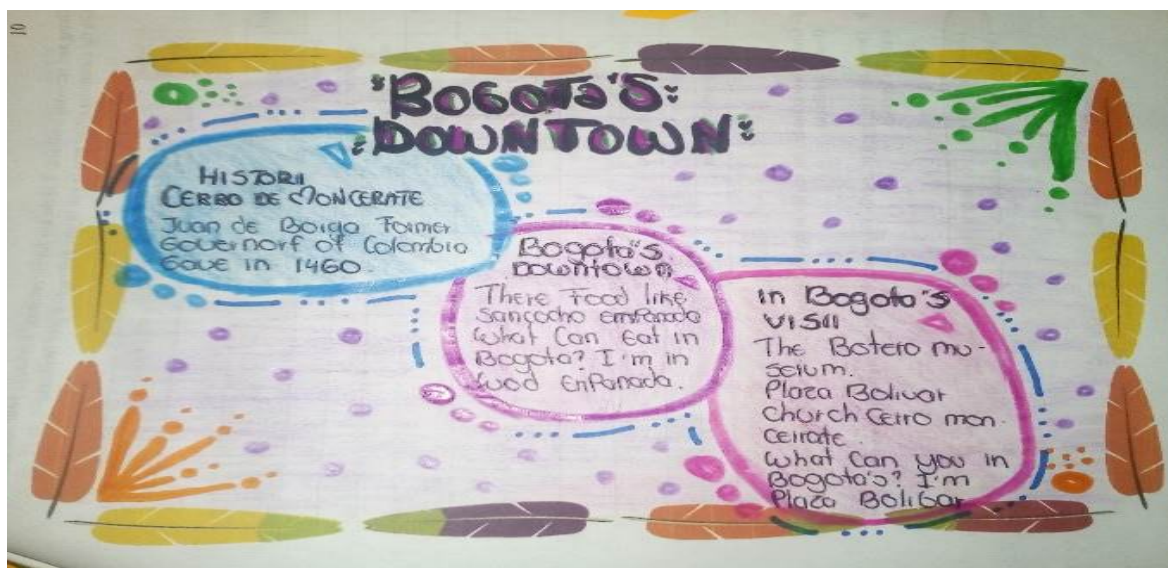 10
BOGOTa'S
DOWNTOWN
HISTORII
CERRO DE MONCERATE
Juan de Boiga Former
Governorf of Colombia
Gove in 1460.
Bogota's
Downtown
There Food like
Sancocho empanada
What Can Eat in
Bogota? I'm in
Enpanada.
in Bogota's
VISII
The Botero mu-
seium.
Plaza Bolivar
church Cerro mon-
ceirate.
What Can you in
Bogota's? I'm
Plaza Boligar